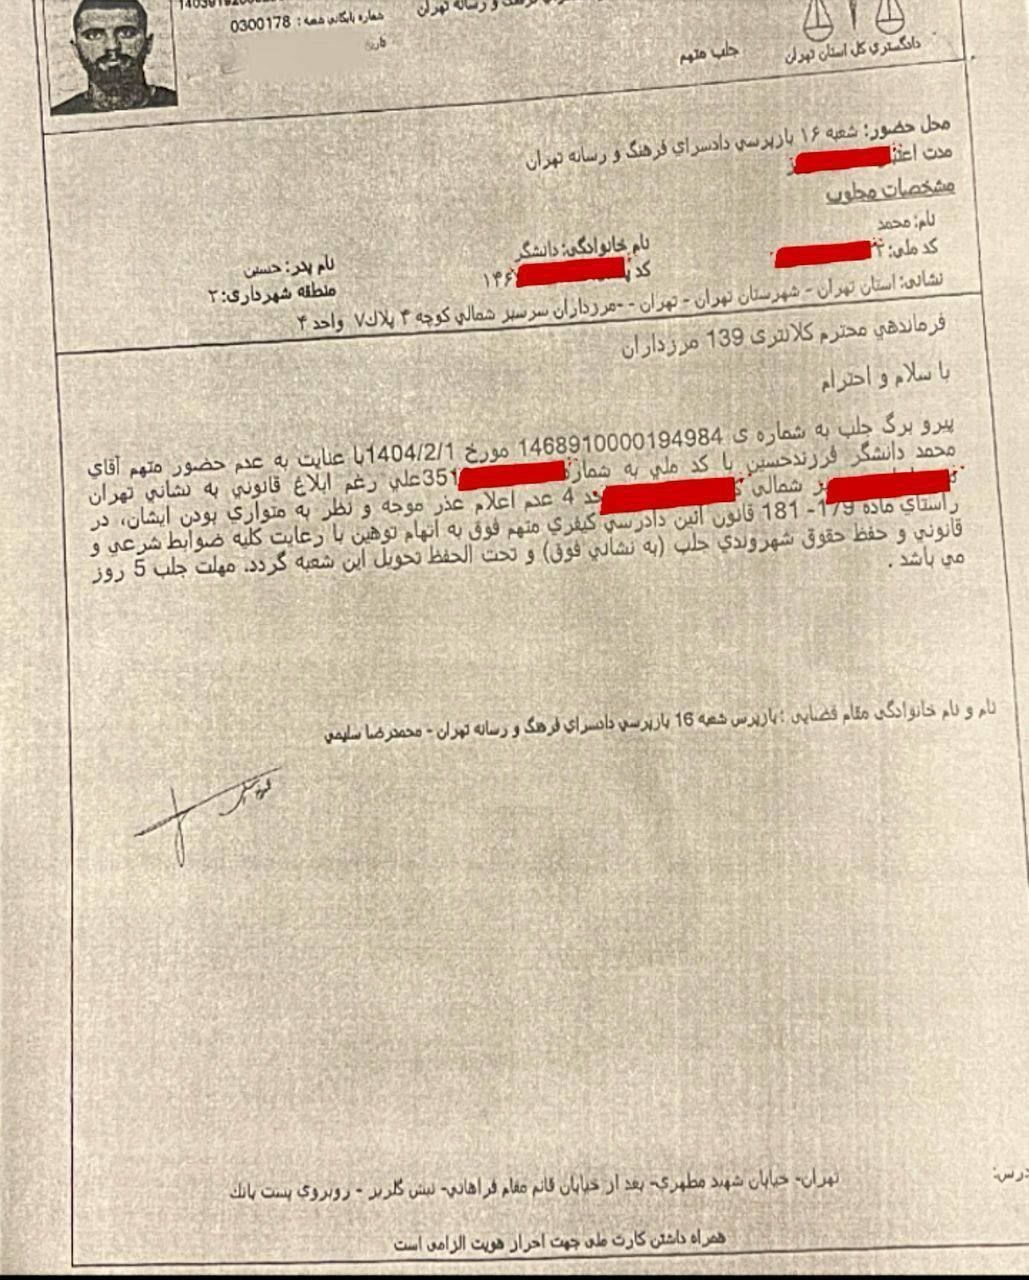 شماره بایگانی شعبه: 0300178
تاریخ
جلب متهم
دادگستری کل استان تهران
محل حضور: شعبه ۱۶ بازپرسي دادسراي فرهنگ و رسانه تهران
مدت
مشخصات مجلوب
نام: محمد
نام خانوادگی: دانشگر
نام پدر: حسین
کد ملی:
کد
۱۴۶
منطقه شهرداری: ۲
نشانی: استان تهران - شهرستان تهران - تهران - -مرزداران سرسبز شمالي کوچه ۴ پلاک۷ واحد ۴
فرماندهي محترم کلانتری 139 مرزداران
با سلام و احترام
پیرو برگ جلب به شماره ی 1468910000194984 مورخ 1404/2/1با عنایت به عدم حضور متهم آقاي
محمد دانشگر فرزندحسین با کد ملي به 351 علي رغم ابلاغ قانوني به نشاني تهران
شمالی 4 عدم اعلام عذر موجه و نظر به متواري بودن ایشان، در
راستاي ماده 179- 181 قانون آئین دادرسي کیفري متهم فوق به اتهام توهین با رعایت کلیه ضوابط شرعي و
قانوني و حفظ حقوق شهروندي جلب (به نشاني فوق) و تحت الحفظ تحویل این شعبه گردد. مهلت جلب 5 روز
مي باشد .
نام و نام خانوادگی مقام قضایی : بازپرس شعبه 16 بازپرسي دادسراي فرهنگ و رسانه تهران - محمدرضا سلیمي
تهران- خیابان شهید مطهري- بعد از خیابان قائم مقام فراهاني- نبش گلریز - روبروي پست بانك
همراه داشتن کارت ملی جهت احراز هویت الزامی است